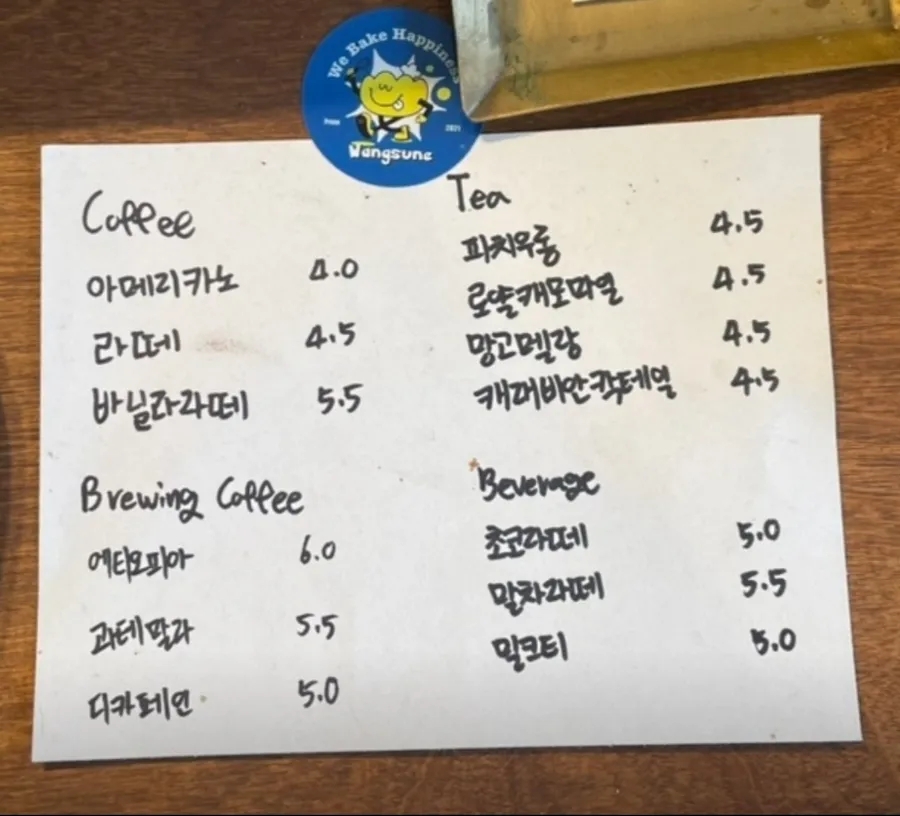 We Bake Happiness
2021
Wangsune
Coffee
아메리카노 4.0
라떼 4.5
바닐라라떼 5.5
Brewing Coffee
에티오피아 6.0
과테말라 5.5
디카페인 5.0
Tea
피치우롱 4.5
로얄캐모마일 4.5
망고멜랑 4.5
캐래비안칵테일 4.5
Beverage
초코라떼 5.0
말차라떼 5.5
밀크티 5.0